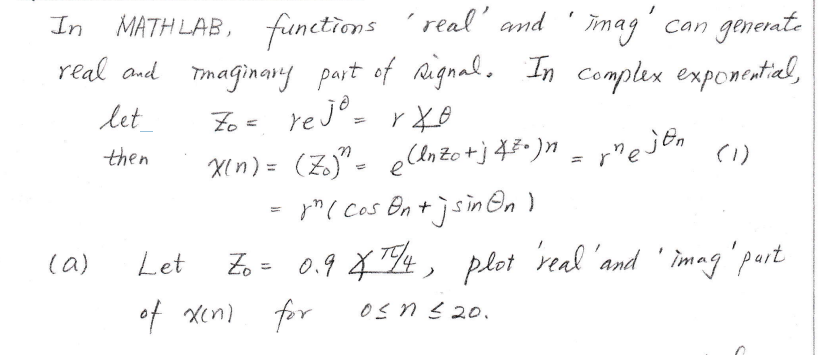 In MATHLAB, functions 'real' and 'imag' can generate
real and imaginary part of signal. In complex exponential,
let Z₀ = re^{jθ} = r∠θ
then x(n) = (Z₀)ⁿ = e^{(ln z₀ + j∠z₀)n} = rⁿe^{jθn} (1)
= rⁿ(cos θn + j sin θn)
(a) Let Z₀ = 0.9 ∠π/4, plot 'real' and 'imag' part
of x(n) for 0 ≤ n ≤ 20.